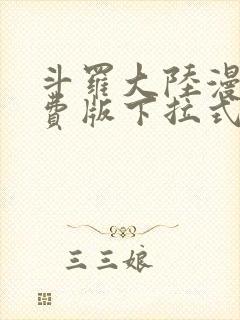 斗羅大陸漫
費版下拉式
三三娘